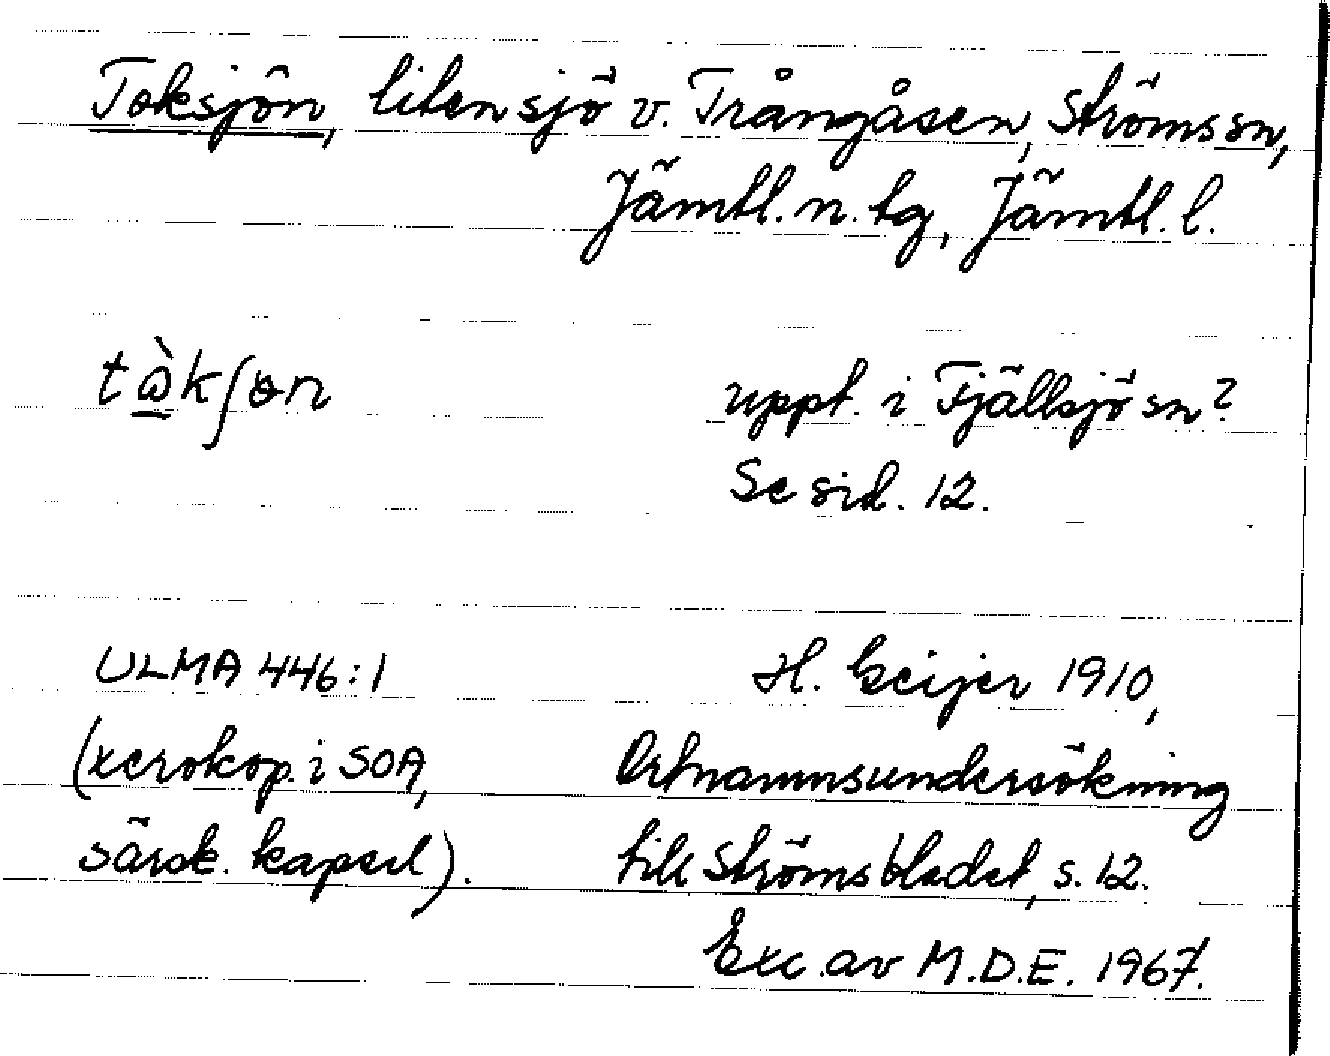 Toksjön, liten sjö v. Trångåsen, Ströms sn,
Jämtl. n. tg, Jämtl. l.
tὼ̱kʃɵn
uppt. i Fjällsjö sn?
Se sid. 12.
ULMA 446:1
H. Geijer 1910,
(xerokop. i SOA,
Ortnamnsundersökning
särsk. kapsel).
till Strömsbladet, s. 12.
Exc. av M.D.E. 1967.